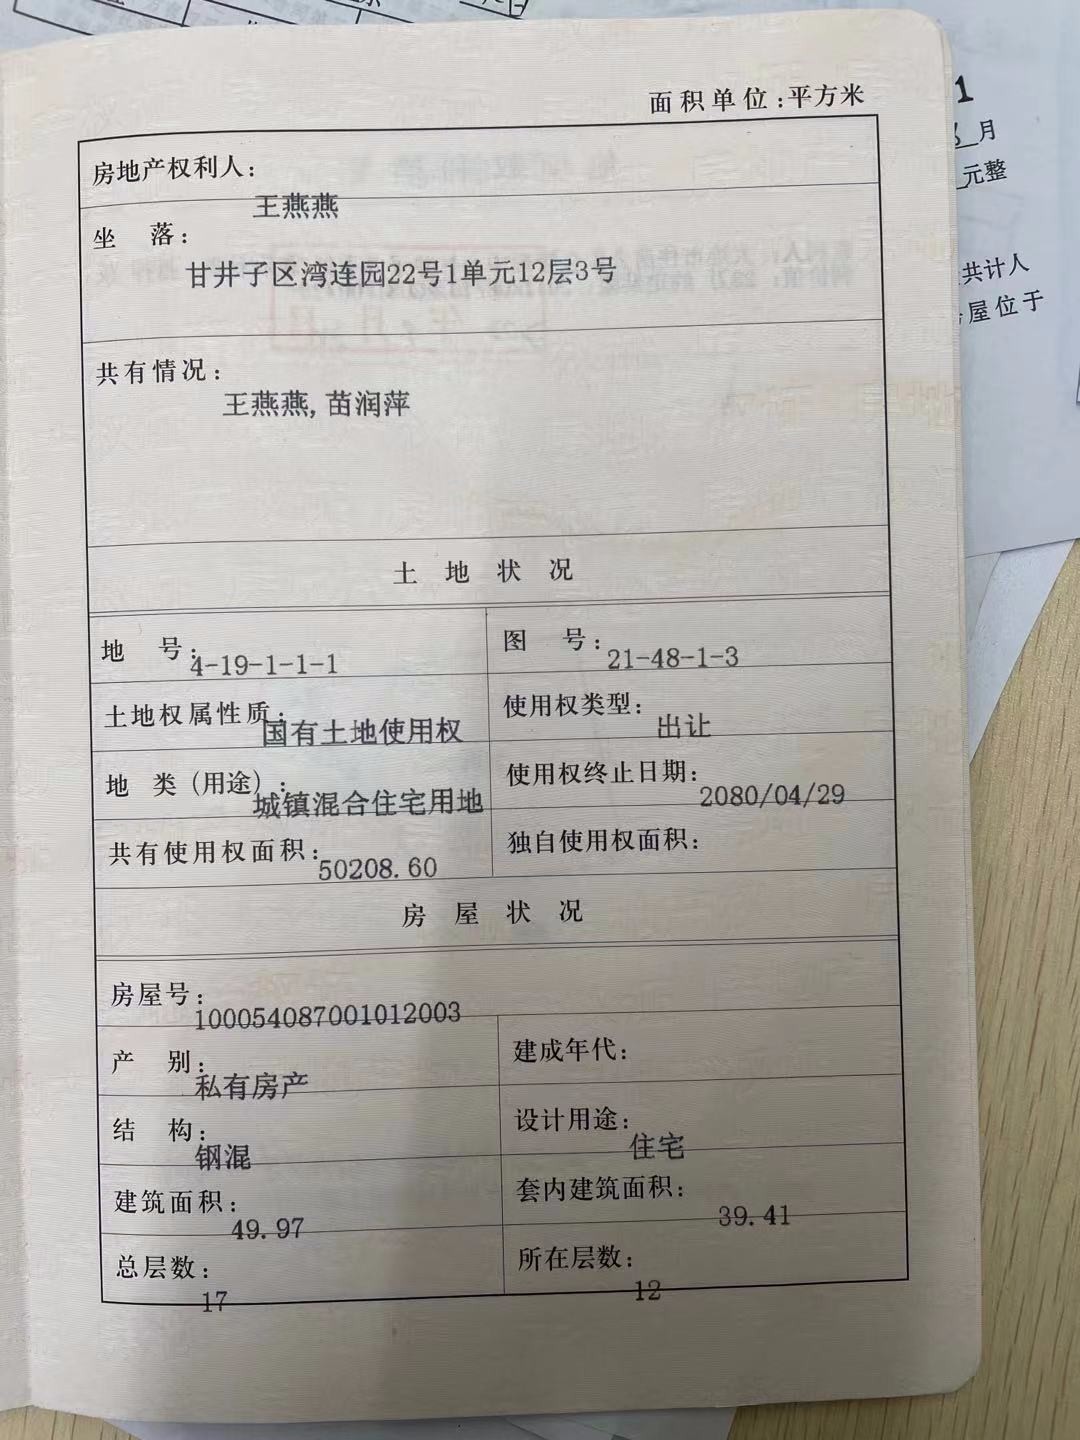 面积单位:平方米
房地产权利人:
王燕燕
坐 落:
甘井子区湾连园22号1单元12层3号
共有情况:
王燕燕,苗润萍
土 地 状 况
地 号:
4-19-1-1-1
图 号:
21-48-1-3
土地权属性质:
国有土地使用权
使用权类型:
出让
地 类(用途):
城镇混合住宅用地
使用权终止日期:
2080/04/29
共有使用权面积:
50208.60
独自使用权面积:
房 屋 状 况
房屋号:
100054087001012003
产 别:
私有房产
建成年代:
结 构:
钢混
设计用途:
住宅
建筑面积:
49.97
套内建筑面积:
39.41
总层数:
17
所在层数:
12
1
月
元整
共计人
屋位于